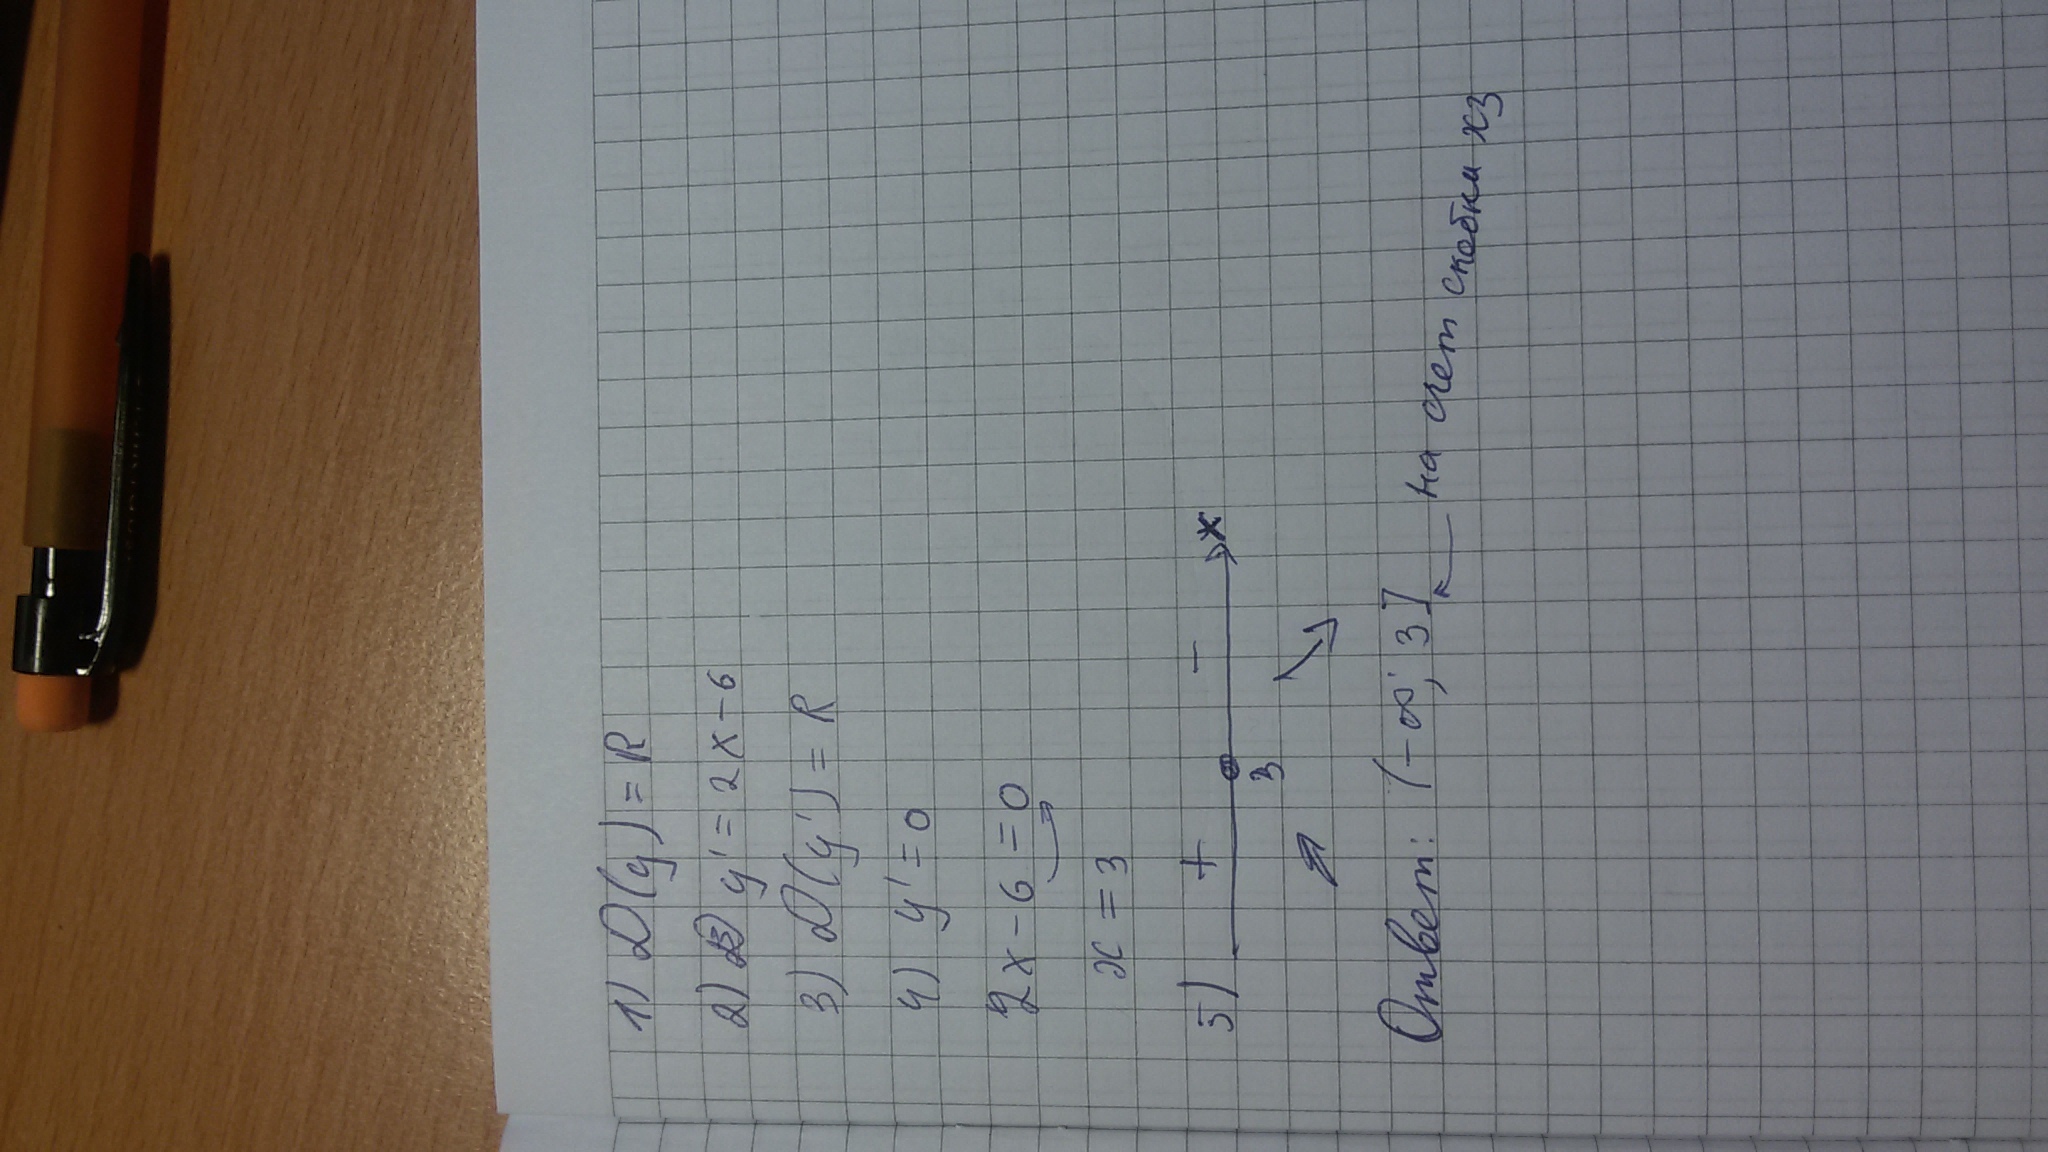 1) D(y) = R
2) y' = 2x - 6
3) D(y') = R
4) y' = 0
2x - 6 = 0
x = 3
5) + - x
3
Ответ: (-∞; 3] ← на счет скобки хз